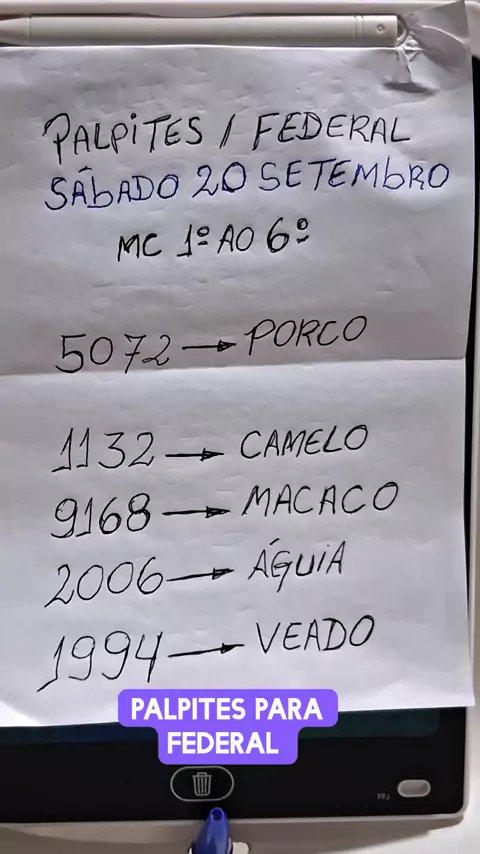 PALPITES / FEDERAL
SÁbADO 20 SETEMbRO
MC 1º AO 6º
5072 → PORCO
1132 → CAMELO
9168 → MACACO
2006 → ÁGUiA
1994 → VEADO
PALPITES PARA
FEDERAL
FFJ